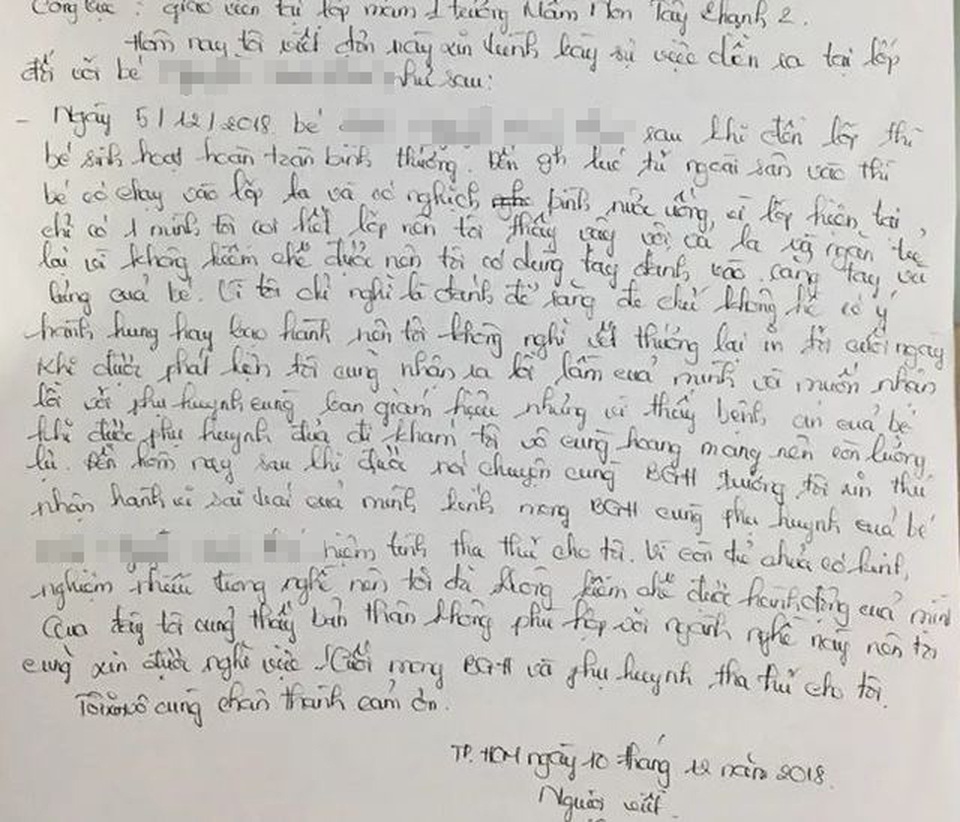 Công tác : giáo viên tại lớp mầm 1 trường Mầm Non Tây Thạnh 2.
Hôm nay tôi viết đơn này xin trình bày sự việc diễn ra tại lớp
đối với bé như sau:
- Ngày 5/12/2018 bé sau khi đến lớp thì
bé sinh hoạt hoàn toàn bình thường. Đến gh lúc từ ngoài sân vào thì
bé có chạy vào lớp la và có nghịch bình nước uống, vì lớp hiện tại
chỉ có 1 mình tôi coi hết lớp nên tôi thấy vậy vội cả la và ngăn
lại và không kiềm chế được nên tôi có dùng tay đánh vào cẳng tay và
lưng của bé. Vì tôi chỉ nghĩ là đánh để răng đe chứ không hề có ý
hành hung hay bạo hành nên tôi không nghĩ vết thương lại in tới cuối ngày
Khi được phát hiện tôi cũng nhận ra lỗi lầm của mình và muốn nhận
lỗi với phụ huynh cùng ban giám hiệu nhưng vì thấy bệnh án của bé
khi được phụ huynh đưa đi khám tôi vô cùng hoang mang nên còn lưỡng
lự. Đến hôm nay sau khi được nói chuyện cùng BGH trường tôi xin thú
nhận hành vi sai trái của mình kính mong BGH cùng phụ huynh của bé
niệm tình tha thứ cho tôi. Vì còn trẻ chưa có kinh
nghiệm nhiều trong nghề nên tôi đã không kiềm chế được hành động của mình
Qua đây tôi cũng thấy bản thân không phù hợp với ngành nghề này nên tôi
cũng xin được nghỉ việc. Cuối mong BGH và phụ huynh tha thứ cho tôi.
Tôi vô cùng chân thành cảm ơn.
TP. HCM ngày 10 tháng 12 năm 2018.
Người viết